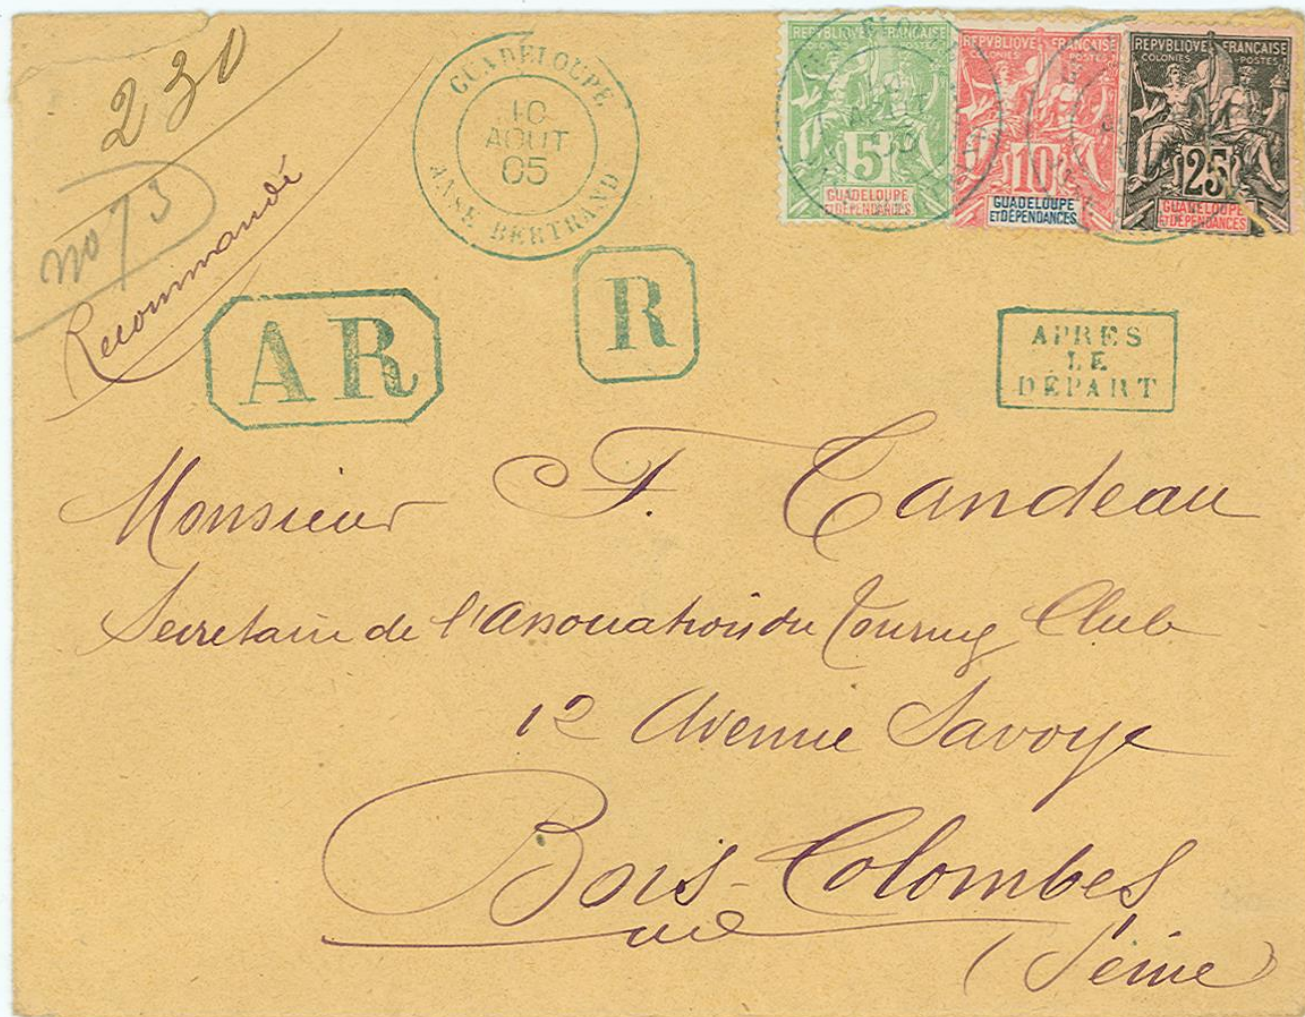 230
no 73
Recommandé
GUADELOUPE
10
AOUT
05
ANSE BERTRAND
REPVBLIQVE FRANÇAISE
COLONIES POSTES
5
GUADELOUPE
ET DÉPENDANCES
REPVBLIQVE FRANÇAISE
COLONIES POSTES
10
GUADELOUPE
ET DÉPENDANCES
REPVBLIQVE FRANÇAISE
COLONIES POSTES
25
GUADELOUPE
ET DÉPENDANCES
AR
R
APRES
LE
DÉPART
Monsieur F. Tandeau
Secretaire de l'Association du Touring Club
12 Avenue Savoye
Bois-Colombes
(Seine)